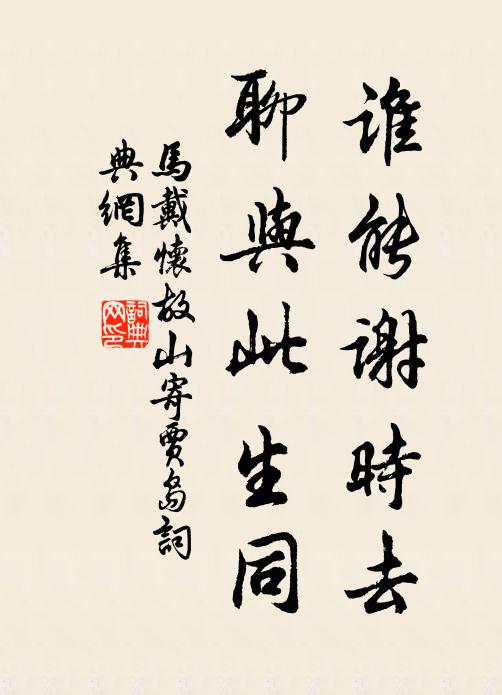 誰能謝時去
聊與此生同
馬戴懷故山寄賈島詞
典網集
詞典
网印